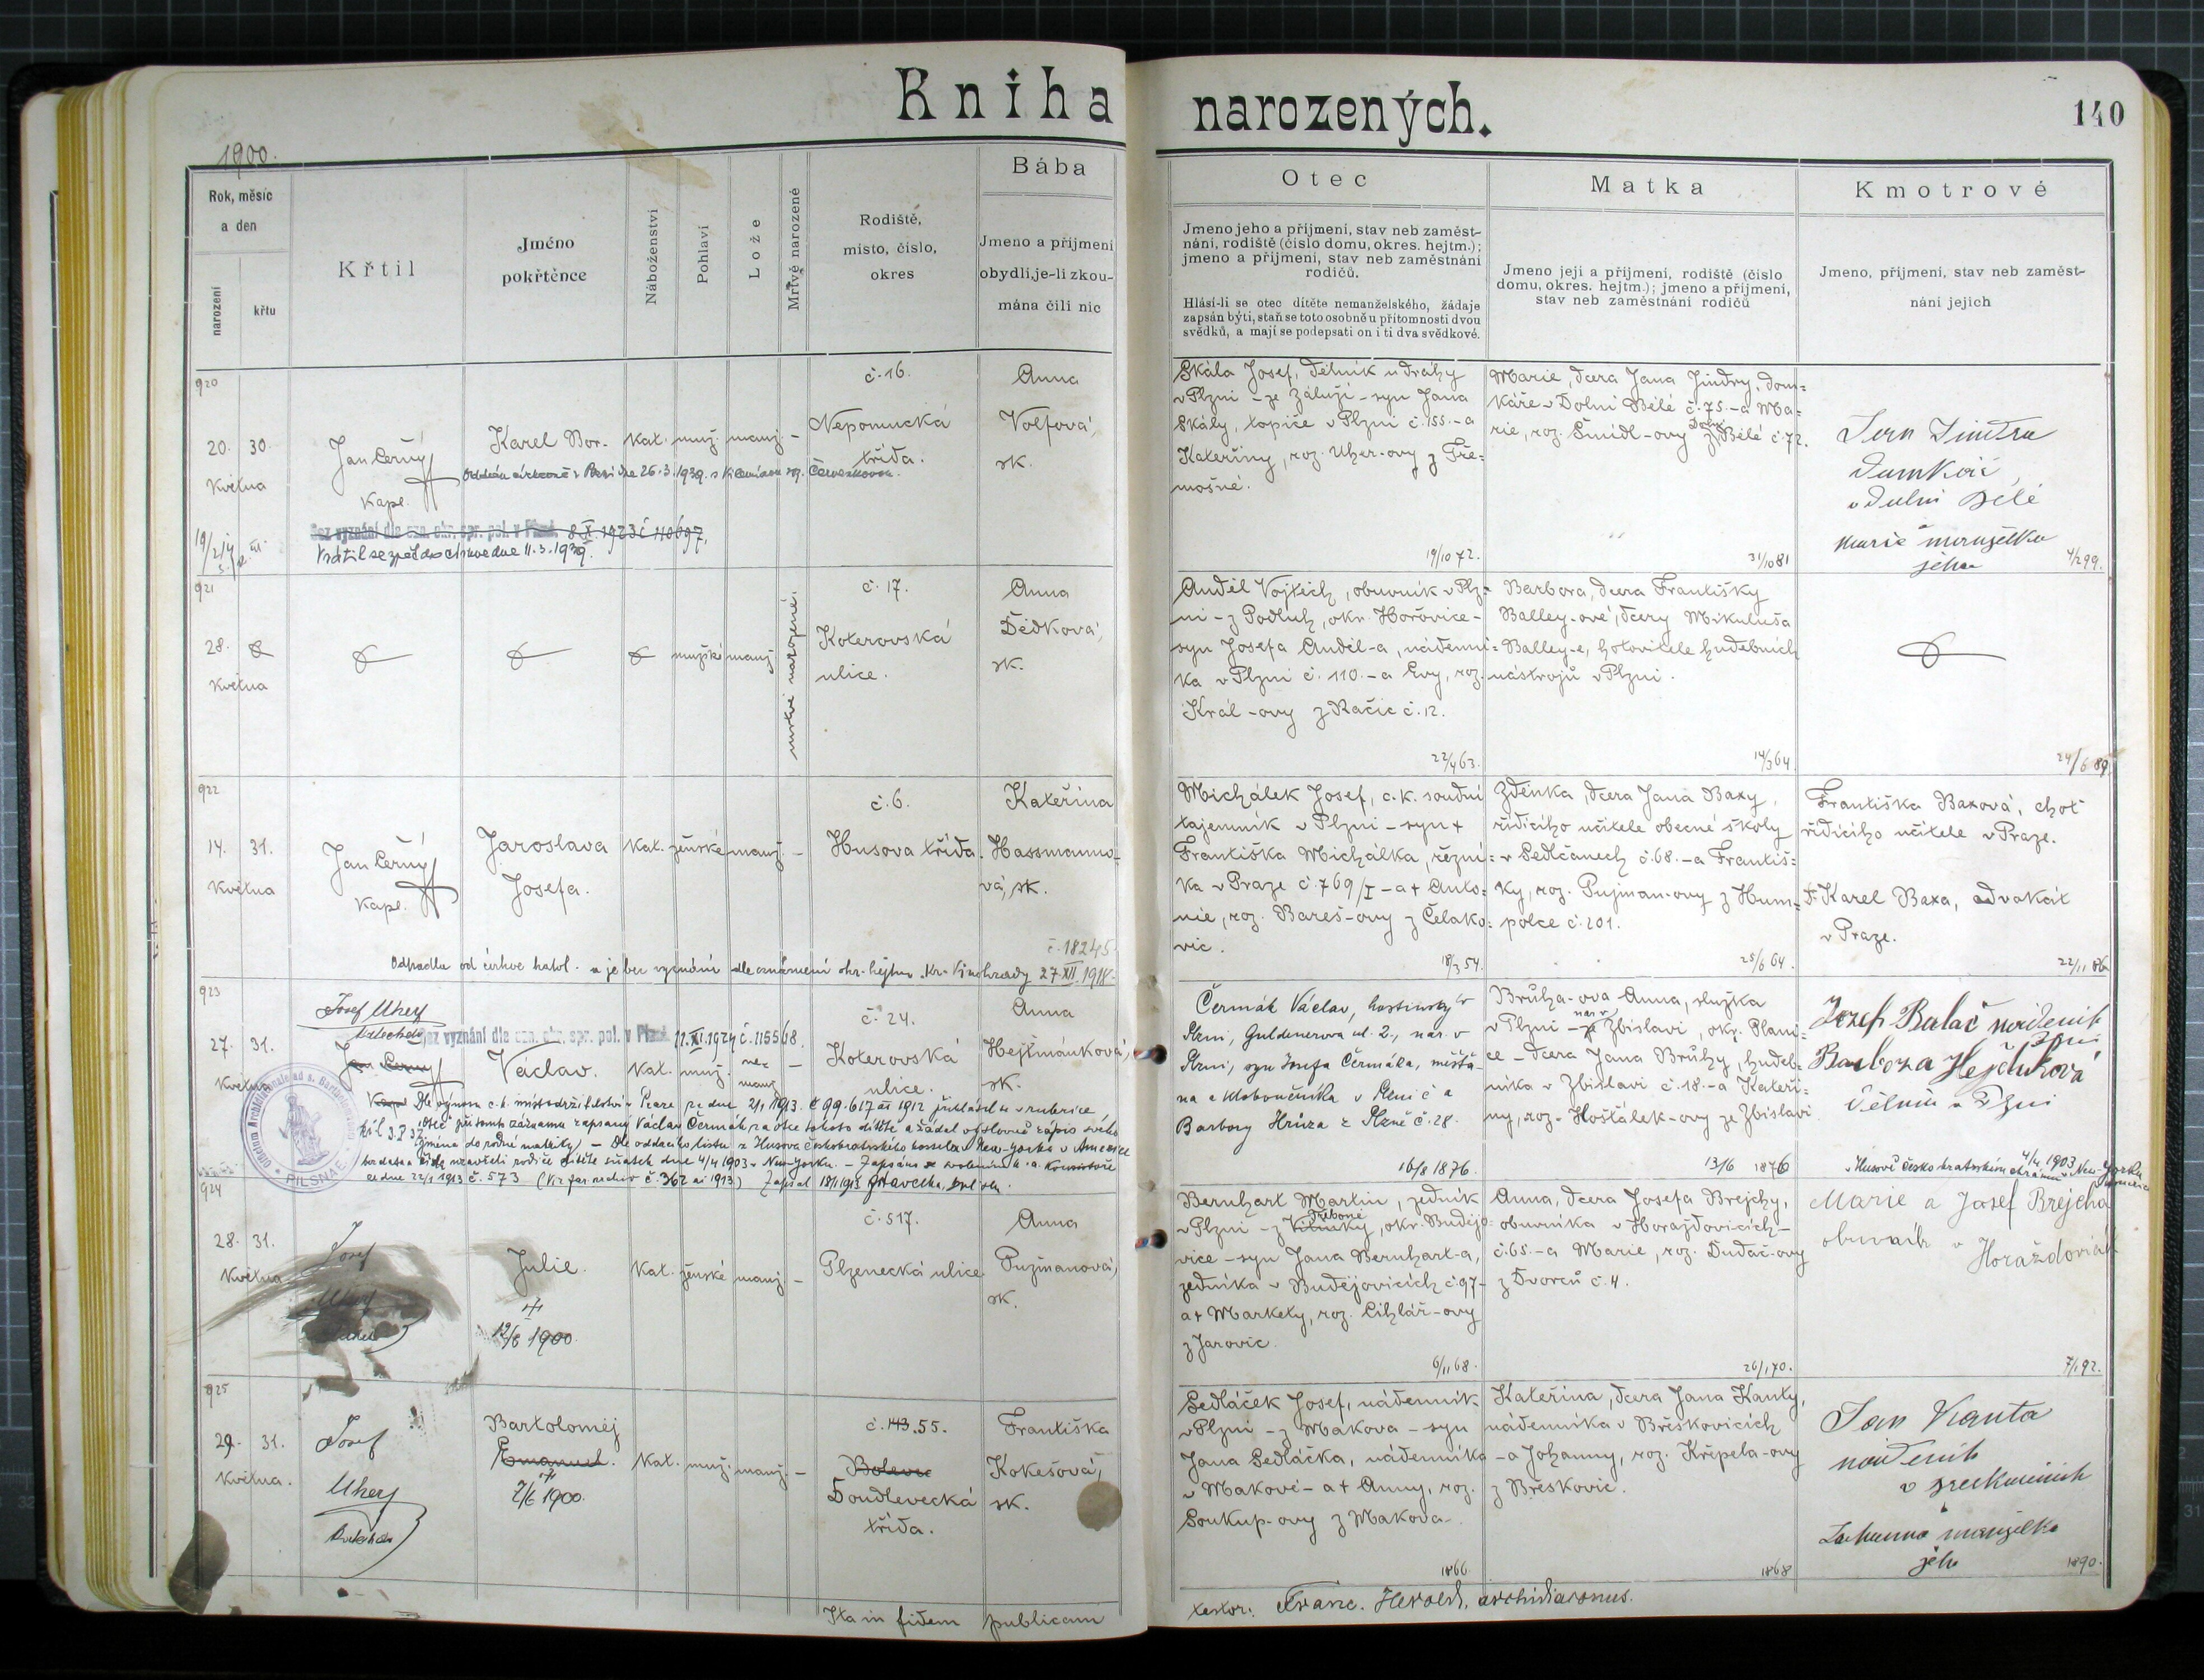 Kniha narozených.
140
1900.
Rok, měsíc
a den
narození
křtu
Křtil
Jméno
pokřtěnce
Náboženství
Pohlaví
Lože
Mrtvě narozené
Rodiště,
místo, číslo,
okres
Bába
Jmeno a příjmení
obydlí, je-li zkou-
mána čili nic
Otec
Jmeno jeho a příjmení, stav neb zaměst-
nání, rodiště (číslo domu, okres. hejtm.);
jmeno a příjmení, stav neb zaměstnání
rodičů.
Hlásí-li se otec dítěte nemanželského, žádaje
zapsán býti, staň se toto osobně u přítomnosti dvou
svědků, a mají se podepsati on i ti dva svědkové.
Matka
Jmeno její a příjmení, rodiště (číslo
domu, okres. hejtm.); jmeno a příjmení,
stav neb zaměstnání rodičů
Kmotrové
Jmeno, příjmení, stav neb zaměst-
nání jejich
920
20. 30.
Května
Jan Černý
Kapl.
Karel Bor.
Kat. muž. manž. –
č. 16.
Nepomucká
třída.
Anna
Volfová,
zk.
Oddán církevně v Plzni dne 26.3.1939. s
Bez vyznání dle ozn. okr. spr. pol. v Plzni. 8.X.1923 č 110697.
Vrátil se zpět do církve dne 11.3.1939.
Skála Josef, dělník u dráhy
v Plzni – ze Záluží – syn Jana
Skály, topiče v Plzni č. 155. – a
Kateřiny, roz. Uher-ovy z Tře=
mošné.
19/10 72.
Marie, dcera Jana Jindry, dom=
káře v Dolní Bělé č. 75. – a Ma=
rie, roz. Šmídl-ovy z Dolní Bělé č. 72.
31/10 81
Jan Jindra
Domkář
v Dolní Bělé
Marie manželka
jeho
4/2 99.
921
28.
Května
mužské manž.
mrtvě narozené.
č. 17.
Koterovská
ulice.
Anna
Dědková,
zk.
Anděl Vojtěch, obuvník v Plz=
ni – z Podluh, okr. Hořovice –
syn Josefa Anděl-a, nádenní=
ka v Plzni č. 110. – a Evy, roz.
Král-ovy z Račic č. 12.
22/4 63.
Barbora, dcera Františky
Balley-ové, dcery Mikuláše
Balley-e, hotovitele hudebních
nástrojů v Plzni.
14/3 64.
24/6 89.
922
14. 31.
Května
Jan Černý
Kapl.
Jaroslava
Josefa.
Kat. ženské manž. –
č. 6.
Husova třída.
Kateřina
Hassmanno=
vá, zk.
č. 18245.
Odpadla od církve katol. a je bez vyznání dle oznámení okr. hejtm. Kr. Vinohrady 27.XII.1918.
Michálek Josef, c.k. soudní
tajemník v Plzni – syn +
Františka Michálka, řezní=
ka v Praze č. 769/I – a + Anto=
nie, roz. Bareš-ovy z Čelako=
vic.
18/3 54.
Zdenka, dcera Jana Baxy,
řídícího učitele obecné školy
v Sedlčanech č. 68. – a Františ=
ky, roz. Pujman-ovy z Hum=
polce č. 201.
25/6 64.
Františka Baxová, choť
řídícího učitele v Praze.
Dr. Karel Baxa, advokát
v Praze.
22/11 86
923
27. 31.
Května
Josef Uherý
Jan Černý
Bez vyznání dle ozn. okr. spr. pol. v Plzni. 11.XI.1924 č. 115568.
Václav.
Kat. muž. ne-
manž –
č. 24.
Koterovská
ulice.
Anna
Hejtmánková,
zk.
Dle výnosu c.k. místodržitelství v Praze ze dne 21/1 1913. č 99.617 ai 1912 přihlásil se v rubrice
„otec" při tomto záznamu zapsaný Václav Čermák za otce tohoto dítěte a žádal o zápis svého
jména do rodné matriky) – Dle oddacího listu z Husova českobratrského kostela v New-Yorku v Americe
uzavřeli rodiče dítěte sňatek dne 4/4 1903 v New-Yorku. –
ze dne 22/1 1913 č. 573 (Viz far. archiv č. 362 ai 1913)
PILSNAE
Čermák Václav, hostinský v
Plzni, Guldenerova ul. 2., nar. v
Plzni, syn Josefa Čermáka, měšťa-
na a kloboučníka v Plzni č a
Barbory Hrůza z Plzně č. 28.
16/8 1876.
Brůha-ova Anna, služka
v Plzni – nar. v Zbislavi, okr. Plani=
ce – dcera Jana Brůhy, hudeb=
níka v Zbislavi č. 18. – a Kateři=
ny, roz. Hoštálek-ovy ze Zbislavi
13/6 1876
Josef Balač nádeník
v Plzni
Barbora Hejduková
v Plzni
4/4 1903
v Husově českobratrském chrámu v New-Yorku
924
28. 31.
Května
Josef
Uherý
Julie.
+
12/6 1900.
Kat. ženské manž. –
č. 517.
Plzenecká ulice
Anna
Pujmanová,
zk.
Bernhart Martin, zedník
v Plzni – z Třeboně, okr. Budějo=
vice – syn Jana Bernhart-a,
zedníka v Budějovicích č. 97 –
a + Markety, roz. Cihlář-ovy
z Jarovic.
6/11 68.
Anna, dcera Josefa Brejchy,
obuvníka v Horažďovicích –
č. 65. – a Marie, roz. Dudáč-ovy
z Dvorců č. 4.
26/1 70.
Marie a Josef Brejcha
obuvník v
Horažďovicích
7/1 92.
925
29. 31.
Května.
Josef
Uherý
Bartoloměj
Emanuel.
+
7/6 1900.
Kat. muž. manž. –
č. 143. 55.
Bolevec
Doudlevecká
třída.
Františka
Kokešová,
zk.
Sedláček Josef, nádenník
v Plzni – z Makova – syn
Jana Sedláčka, nádenníka
v Makově – a + Anny, roz.
Soukup-ovy z Makova –
1866.
Kateřina, dcera Jana Kanty,
nádenníka v Břeskovicích
– a Johanny, roz. Křepela-ovy
z Břeskovic.
1868
Jan Kanta
nádeník
v Břeskovicích
Johanna manželka
jeho
1890.
Ita in fidem publicam
testor: Franc. Herold, archidiaconus.